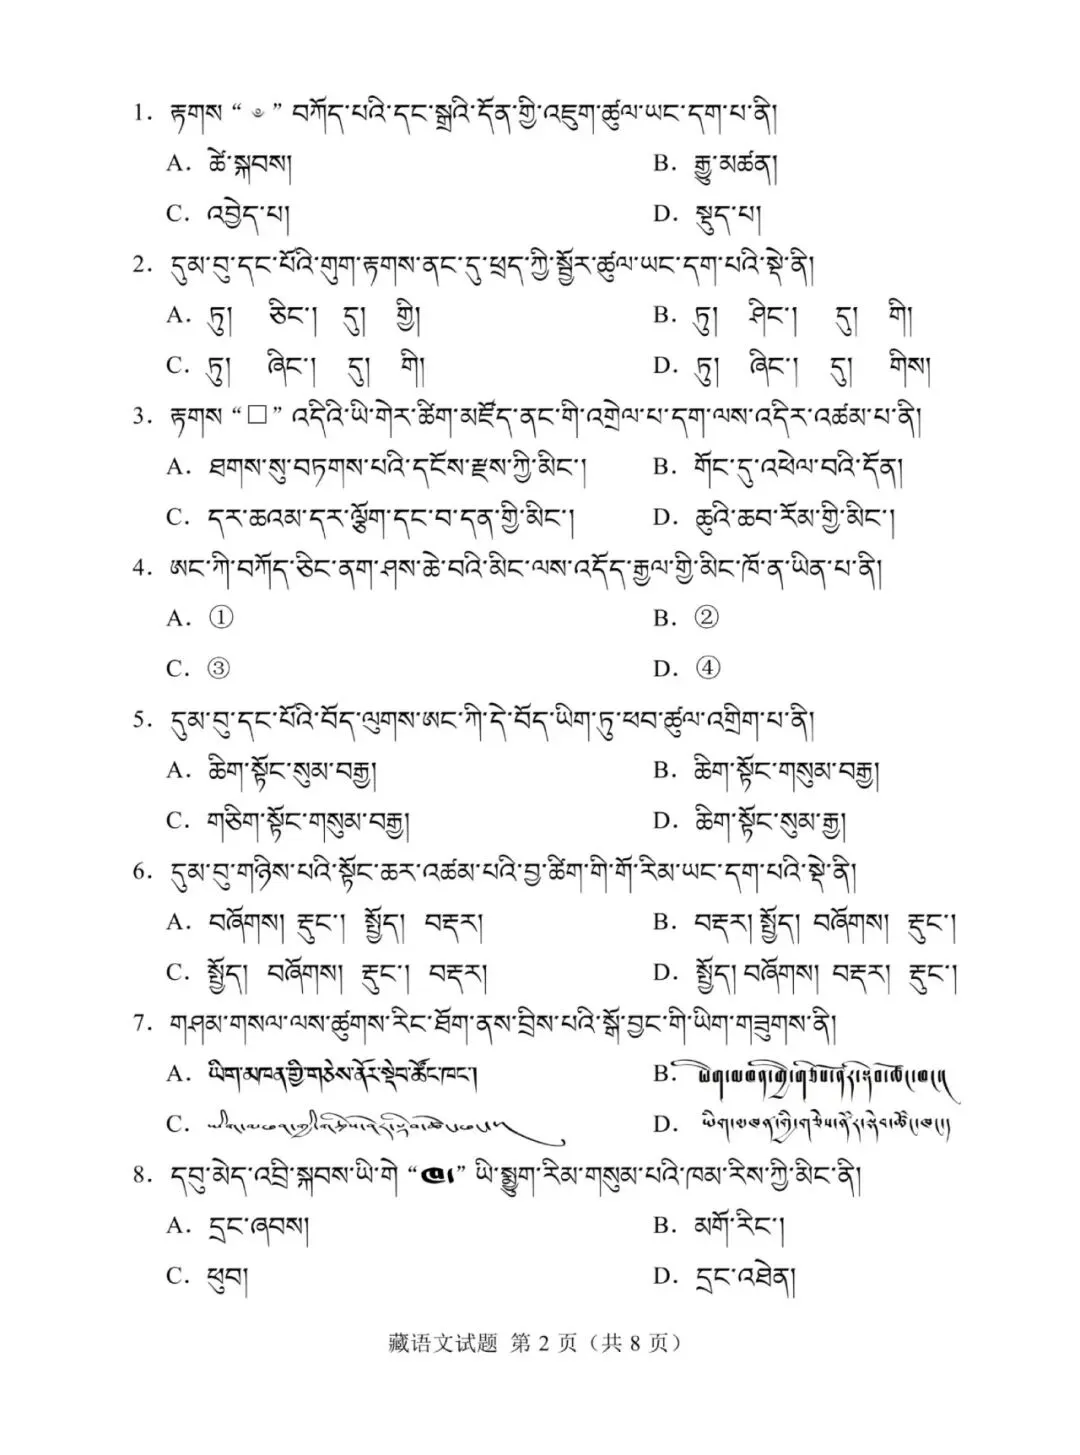 1. རྟགས “ ༧ ” བཀོད་པའི་དང་སྒྲའི་དོན་གྱི་འཇུག་ཚུལ་ཡང་དག་པ་ནི།
A. ཚེ་སྐབས། B. རྒྱུ་མཚན།
C. འབྱེད་པ། D. སྡུད་པ།
2. དུམ་བུ་དང་པོའི་གུག་རྟགས་ནང་དུ་ཕྲད་ཀྱི་སྦྱོར་ཚུལ་ཡང་དག་པའི་སྡེ་ནི།
A. ཏུ། ཅིང་། དུ། གྱི། B. ཏུ། ཤིང་། དུ། གི།
C. ཏུ། ཞིང་། དུ། གི། D. ཏུ། ཞིང་། དུ། གིས།
3. རྟགས “□” འདིའི་ཡི་གེར་ཚིག་མཛོད་ནང་གི་འགྲེལ་པ་དག་ལས་འདིར་འཚམ་པ་ནི།
A. ཐགས་སུ་བཏགས་པའི་དངོས་རྫས་ཀྱི་མིང་། B. གོང་དུ་འཕེལ་བའི་དོན།
C. དར་ཆའམ་དར་ལྕོག་དང་བ་དན་གྱི་མིང་། D. ཆུའི་ཆབ་རོམ་གྱི་མིང་།
4. ཨང་ཀི་བཀོད་ཅིང་ནག་ཤས་ཆེ་བའི་མིང་ལས་འདོད་རྒྱལ་གྱི་མིང་ཁོ་ན་ཡིན་པ་ནི།
A. ① B. ②
C. ③ D. ④
5. དུམ་བུ་དང་པོའི་བོད་ལུགས་ཨང་ཀི་དེ་བོད་ཡིག་ཏུ་ཕབ་ཚུལ་འགྲིག་པ་ནི།
A. ཆིག་སྟོང་སུམ་བརྒྱ། B. ཆིག་སྟོང་གསུམ་བརྒྱ།
C. གཅིག་སྟོང་གསུམ་བརྒྱ། D. ཆིག་སྟོང་སུམ་རྒྱ།
6. དུམ་བུ་གཉིས་པའི་སྟོང་ཆར་འཚམ་པའི་བྱ་ཚིག་གི་གོ་རིམ་ཡང་དག་པའི་སྡེ་ནི།
A. བཞོགས། རྡུང་། སྤྱོད། བརྡར། B. བརྡར། སྤྱོད། བཞོགས། རྡུང་།
C. སྤྱོད། བཞོགས། རྡུང་། བརྡར། D. སྤྱོད། བཞོགས། བརྡར། རྡུང་།
7. གཤམ་གསལ་ལས་ཚུགས་རིང་ཐོག་ནས་བྲིས་པའི་སྒོ་བྱང་གི་ཡིག་གཟུགས་ནི།
A. ཡིག་མཁན་གྱི་གཅེས་ནོར་སྡེབ་ཚོང་ཁང་། B.
C. D.
8. དབུ་མེད་འབྲི་སྐབས་ཡི་གེ “ཁ།” ཡི་སྨྱུག་རིམ་གསུམ་པའི་ཁམ་རིས་ཀྱི་མིང་ནི།
A. དྲང་ཞབས། B. མགོ་རིང་།
C. ཕུབ། D. དྲང་འཐེན།
藏语文试题 第 2 页（共 8 页）